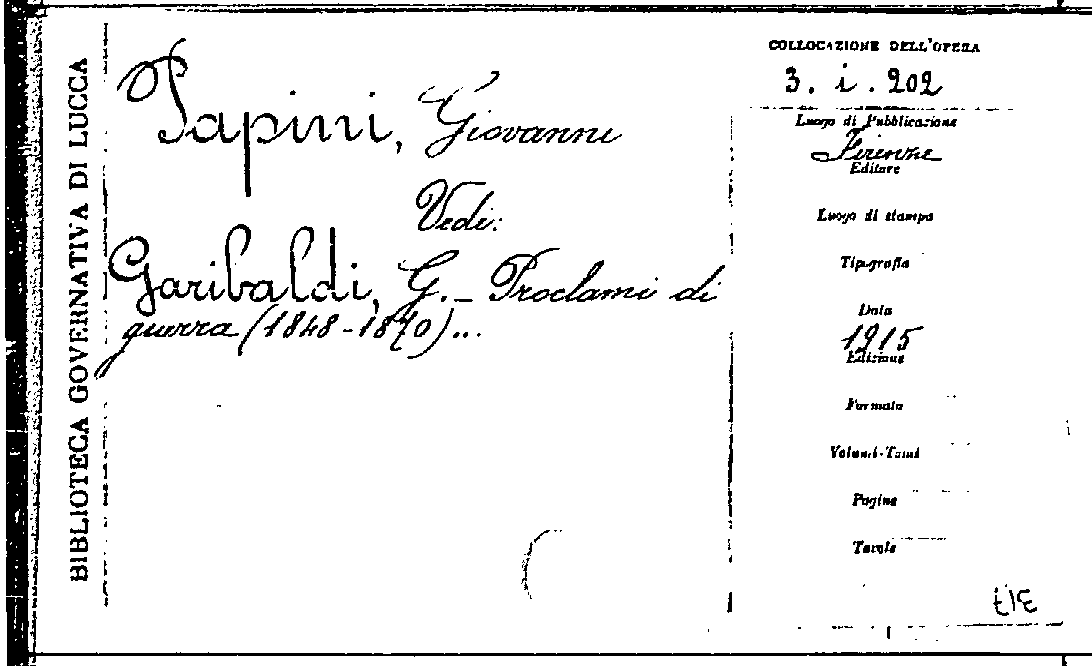 BIBLIOTECA GOVERNATIVA DI LUCCA
Papini, Giovanni
Vedi:
Garibaldi, G. _ Proclami di
guerra (1848-1870)...
COLLOCAZIONE DELL'OPERA
3. i. 202
Luogo di Pubblicazione
Firenze
Editore
Luogo di stampa
Tipografia
Data
1915
Edizione
Formato
Volumi-Tomi
Pagine
Tavole
317